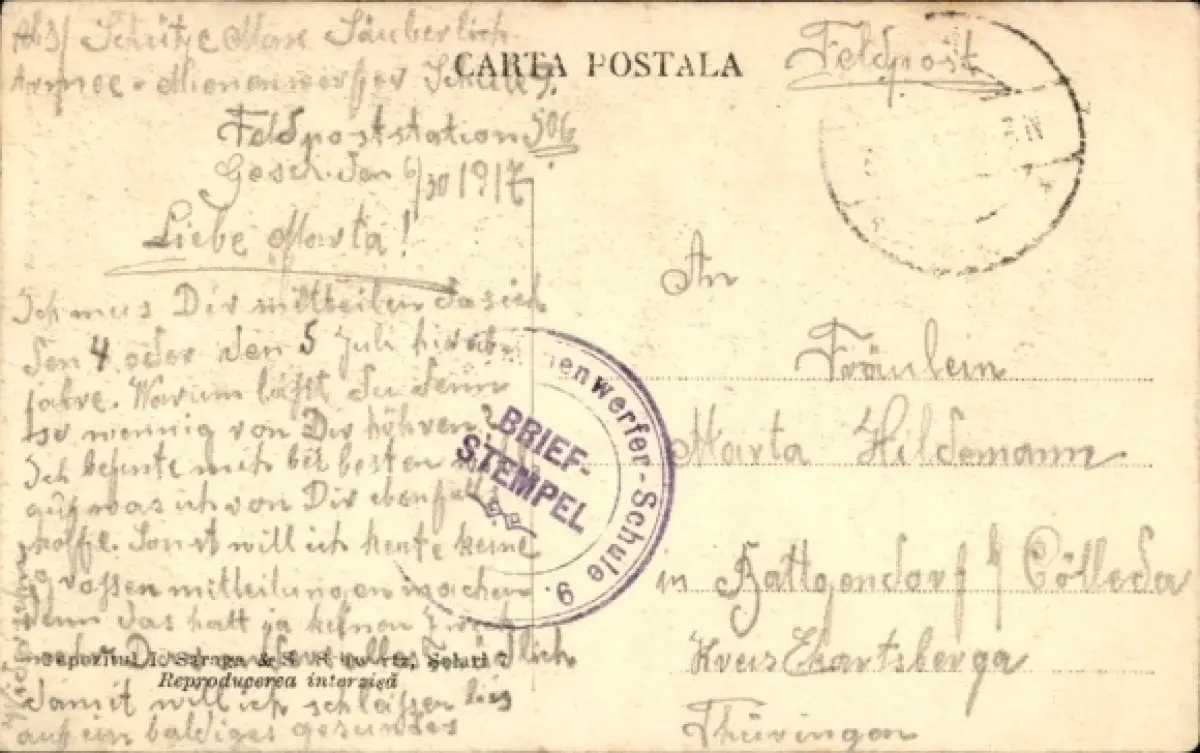 Abs/ Schütze Max Säuberlich
Armee-Mienenwerfer Schule 9.
Feldpoststation 506
Gesch. den 6/30 1917.
Liebe Marta!
Ich mus Dir mitteilen das ich
den 4 oder den 5 Juli hir
fahre. Warum läßt du denn
so wennig von Dir höhren?
Ich befinte mich bei besten
auf was ich von Dir ebenfalls
hoffe. Sonst will ich heute keine
großen mitteilungen machen
denn das hatt ja keinen Zweck
Damit will ich schließen bis
auf ein baldiges gesundes
CARTA POSTALA
Feldpost
An
Fräulein
Marta Hildemann
in Battgendorf b/ Cölleda
Kreis Ekartsberga
Thüringen
enwerfer-Schule 9.
BRIEF-
STEMPEL
Depozitul I. Saraga & S. Schwartz, Selari 7
Reproducerea interzisă